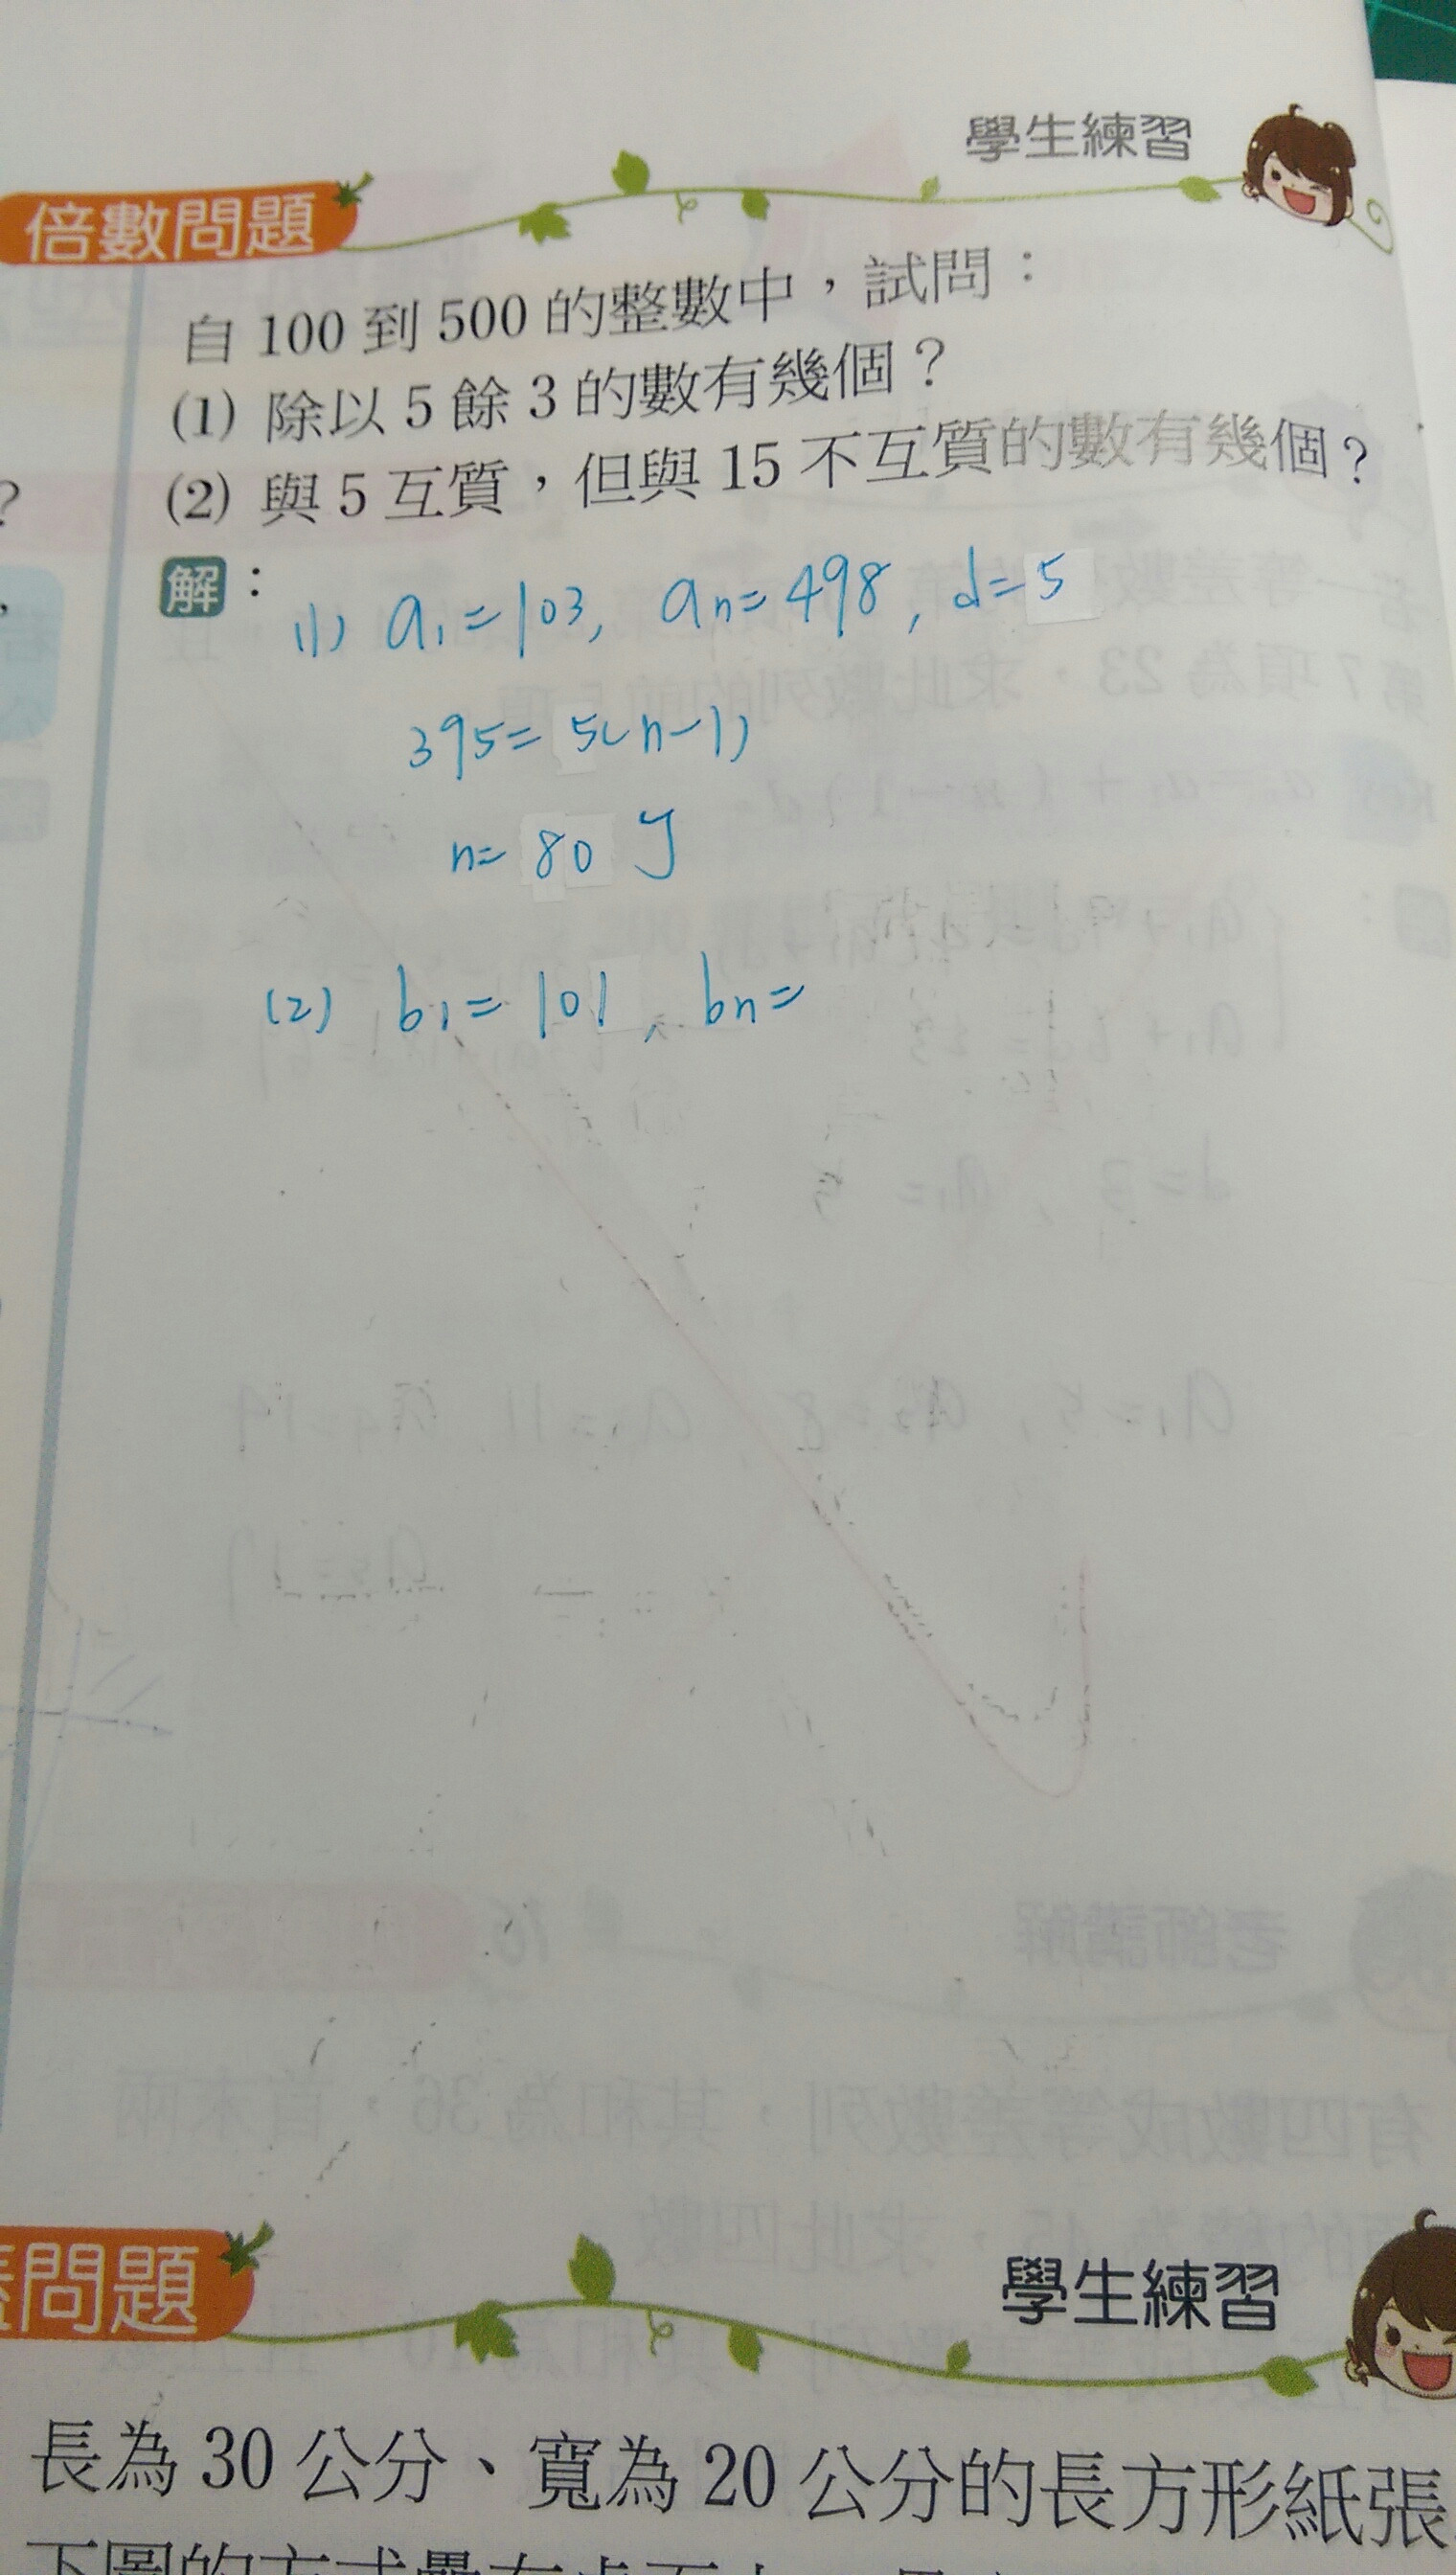 學生練習
倍數問題
自 100 到 500 的整數中，試問：
(1) 除以 5 餘 3 的數有幾個？
(2) 與 5 互質，但與 15 不互質的數有幾個？
?
解：
(1) a₁=103, aₙ=498, d=5
395=5(n-1)
n=80
(2) b₁=101, bₙ=
問題
學生練習
長為 30 公分、寬為 20 公分的長方形紙張